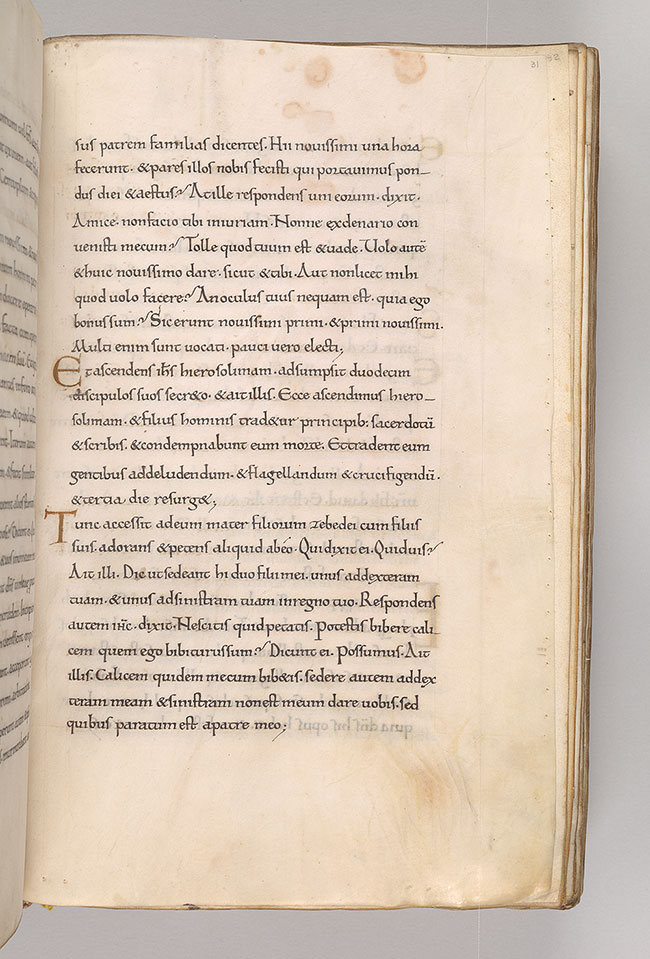 31
sus patrem familias dicentes. Hii novissimi una hora
fecerunt. &pares illos nobis fecisti qui portavimus pon_
dus diei &aestus? At ille respondens uni eorum. dixit.
Amice. nonfacio tibi iniuriam. Nonne exdenario con
venisti mecum? Tolle quod tuum est &uade. Uolo autē
&huic novissimo dare. sicut &tibi. Aut nonlicet mihi
quod uolo facere? An oculus tuus nequam est. quia ego
bonus sum? Sic erunt novissimi primi. &primi novissimi.
Multi enim sunt vocati. pauci vero electi;
Et ascendens ihs hierosolimam. adsumpsit duodecim
discipulos suos secr&o. &ait illis. Ecce ascendimus hiero_
solimam. &filius hominis trad&ur principib: sacerdotū
&scribis. &condempnabunt eum morte. Et tradent eum
gentibus addeludendum. &flagellandum &crucifigendū.
&tertia die resurg&;
Tunc accessit adeum mater filiorum zebedei cum filiis
suis. adorans &petens aliquid ab eo. Qui dixit ei. Quid uis?
Ait illi. Dic ut sedeant hi duo filii mei. unus addexteram
tuam. &unus adsinistram tuam inregno tuo. Respondens
autem ihc. dixit. Nescitis quid petatis. Potestis bibere cali_
cem quem ego bibiturus sum? Dicunt ei. Possumus. Ait
illis. Calicem quidem mecum bib&is. sedere autem addex
teram meam &sinistram non est meum dare uobis. sed
quibus paratum est apatre meo;